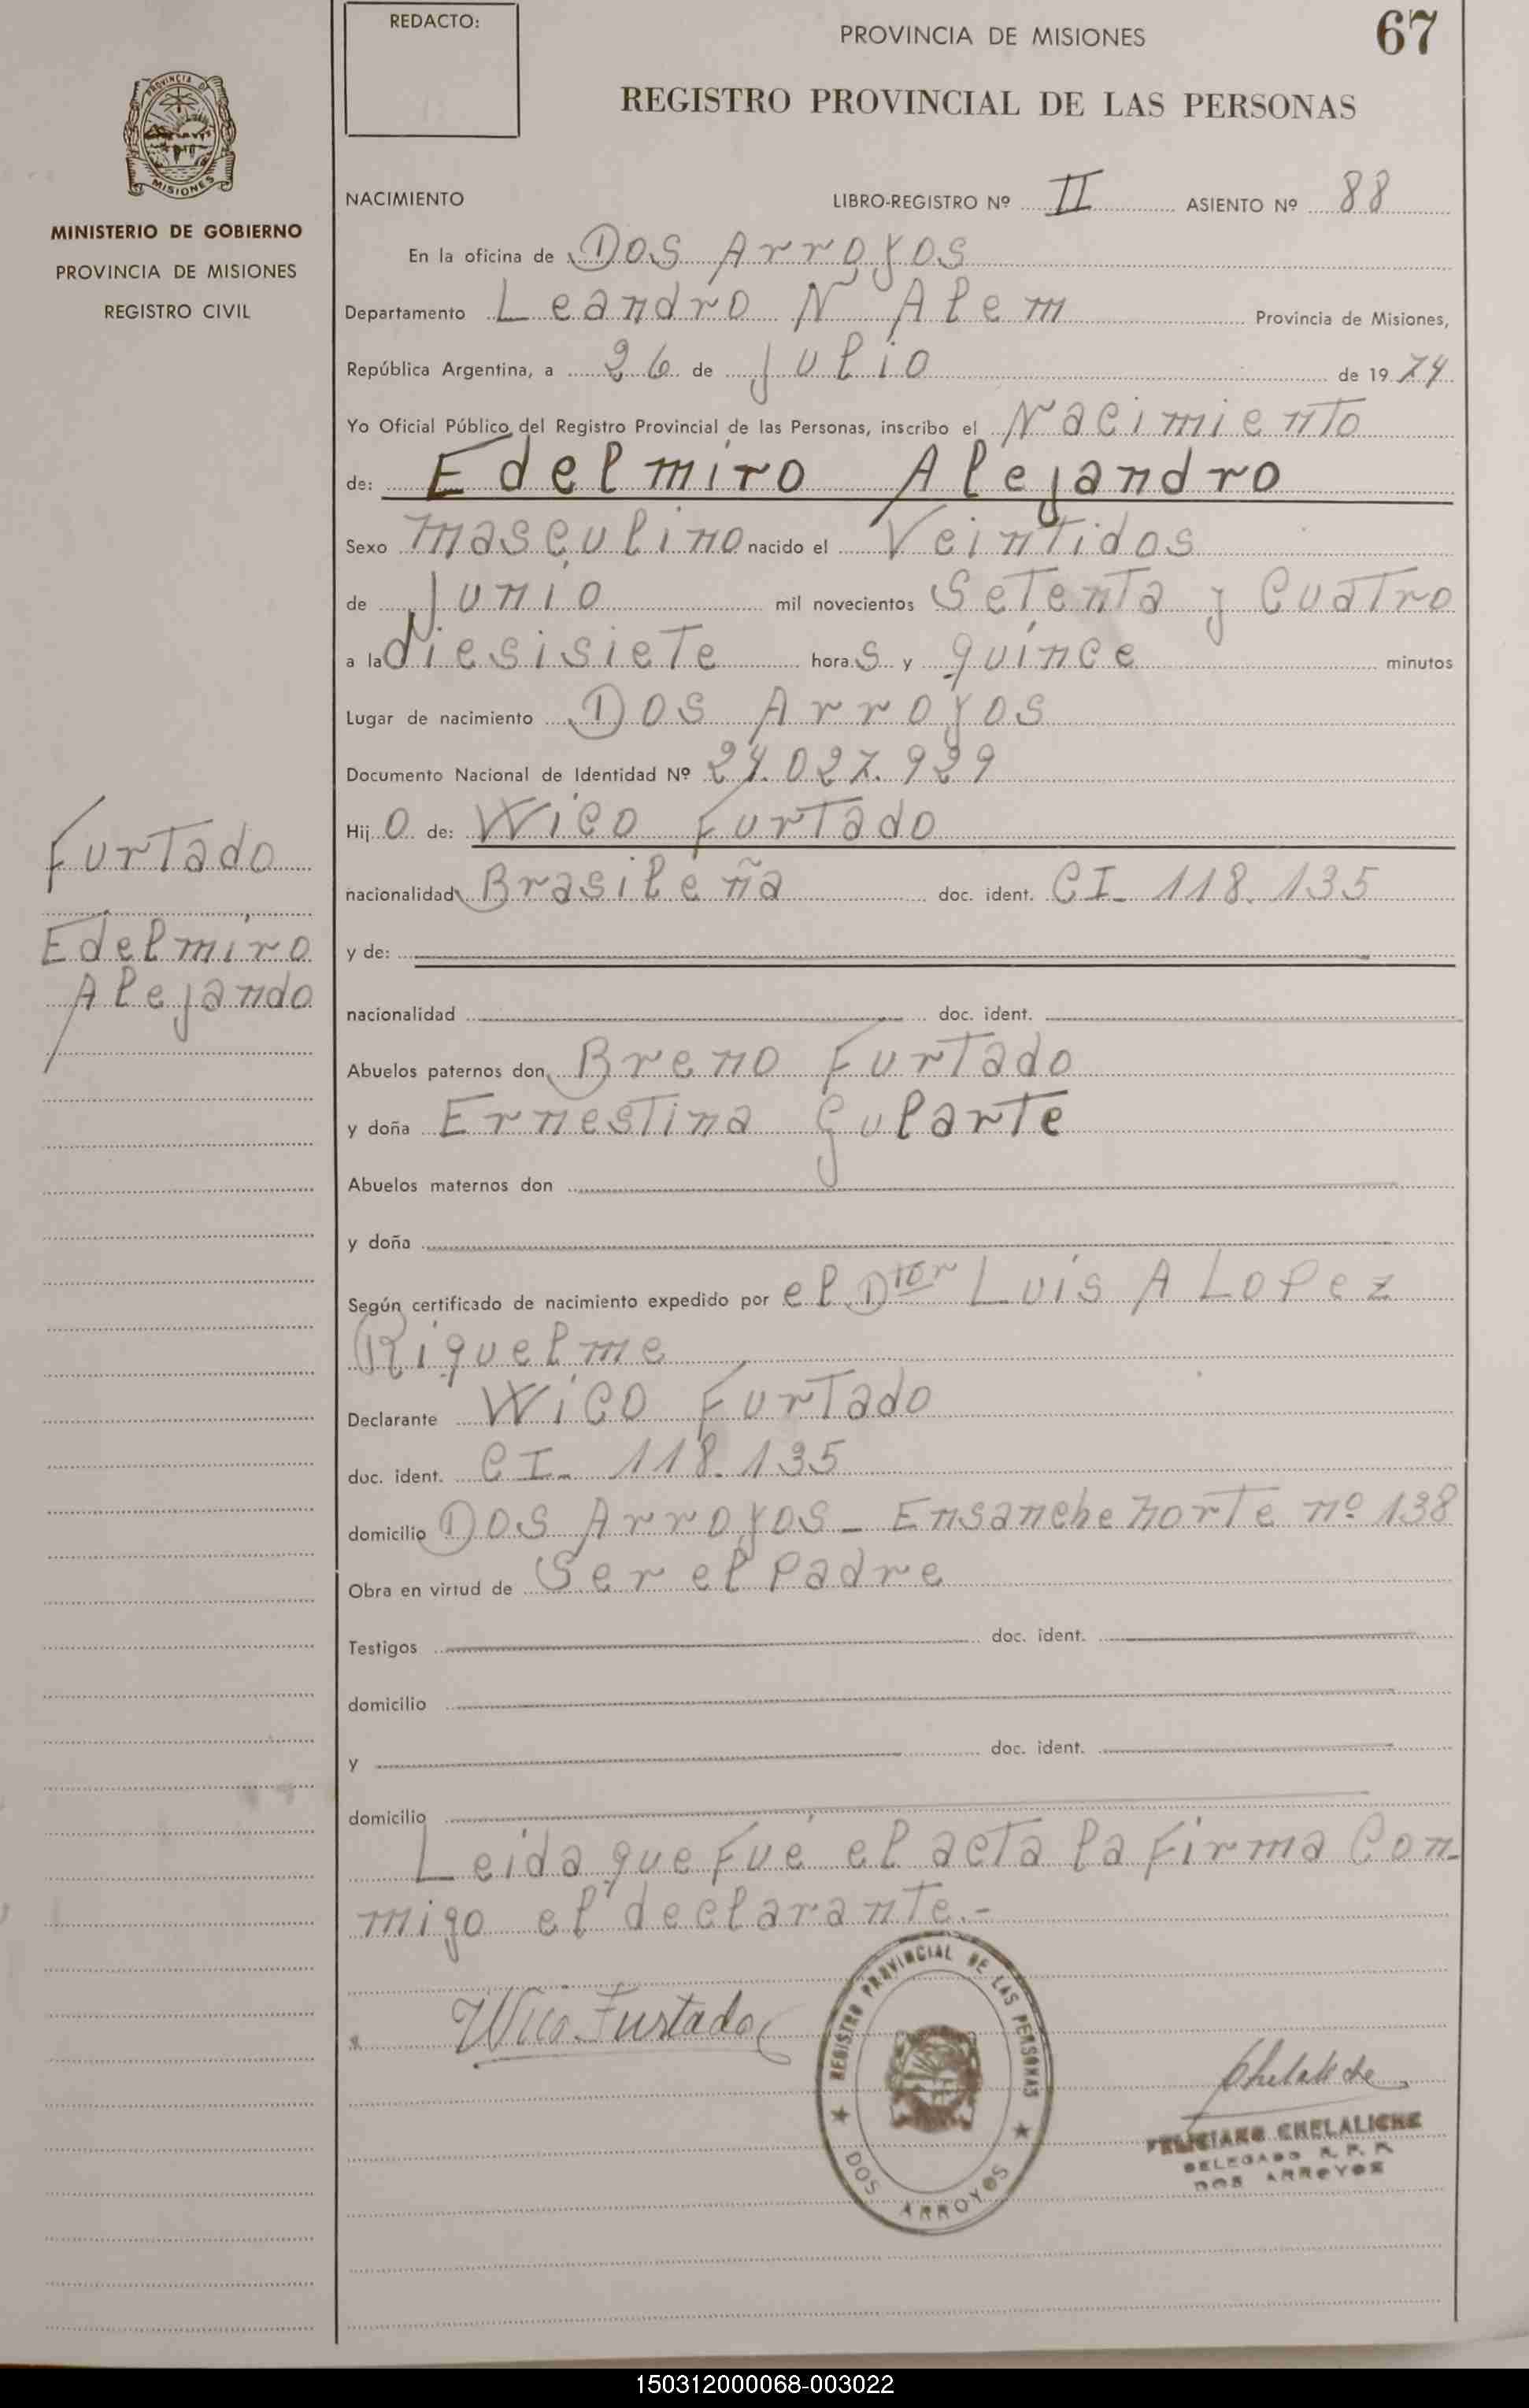 REDACTO:
PROVINCIA DE MISIONES
67
REGISTRO PROVINCIAL DE LAS PERSONAS
PROVINCIA DE
MISIONES
MINISTERIO DE GOBIERNO
PROVINCIA DE MISIONES
REGISTRO CIVIL
NACIMIENTO LIBRO-REGISTRO Nº II ASIENTO Nº 88
En la oficina de Dos Arroyos
Departamento Leandro N Alem Provincia de Misiones,
República Argentina, a 26 de Julio de 1974
Yo Oficial Público del Registro Provincial de las Personas, inscribo el Nacimiento
de: Edelmiro Alejandro
Sexo masculino nacido el Veintidos
de Junio mil novecientos Setenta y Cuatro
a la diesisiete horas y quince minutos
Lugar de nacimiento Dos Arroyos
Documento Nacional de Identidad Nº 24.027.929
Hijo de: Wico Furtado
nacionalidad Brasileña doc. ident. CI- 118.135
y de:
nacionalidad doc. ident.
Furtado
Edelmiro
Alejando
Abuelos paternos don Breno Furtado
y doña Ernestina Gularte
Abuelos maternos don
y doña
Según certificado de nacimiento expedido por el Dtor Luis A Lopez
Riquelme
Declarante Wico Furtado
doc. ident. CI- 118.135
domicilio Dos Arroyos - Ensanche Norte nº 138
Obra en virtud de Ser el Padre
Testigos doc. ident.
domicilio
y doc. ident.
domicilio
Leida que fué el acta la firma Con-
migo el declarante.-
Wico Furtado
REGISTRO PROVINCIAL DE LAS PERSONAS
DOS ARROYOS
Chelaliche
FELICIANO CHELALICHE
DELEGADO R. P. P.
DOS ARROYOS
150312000068-003022